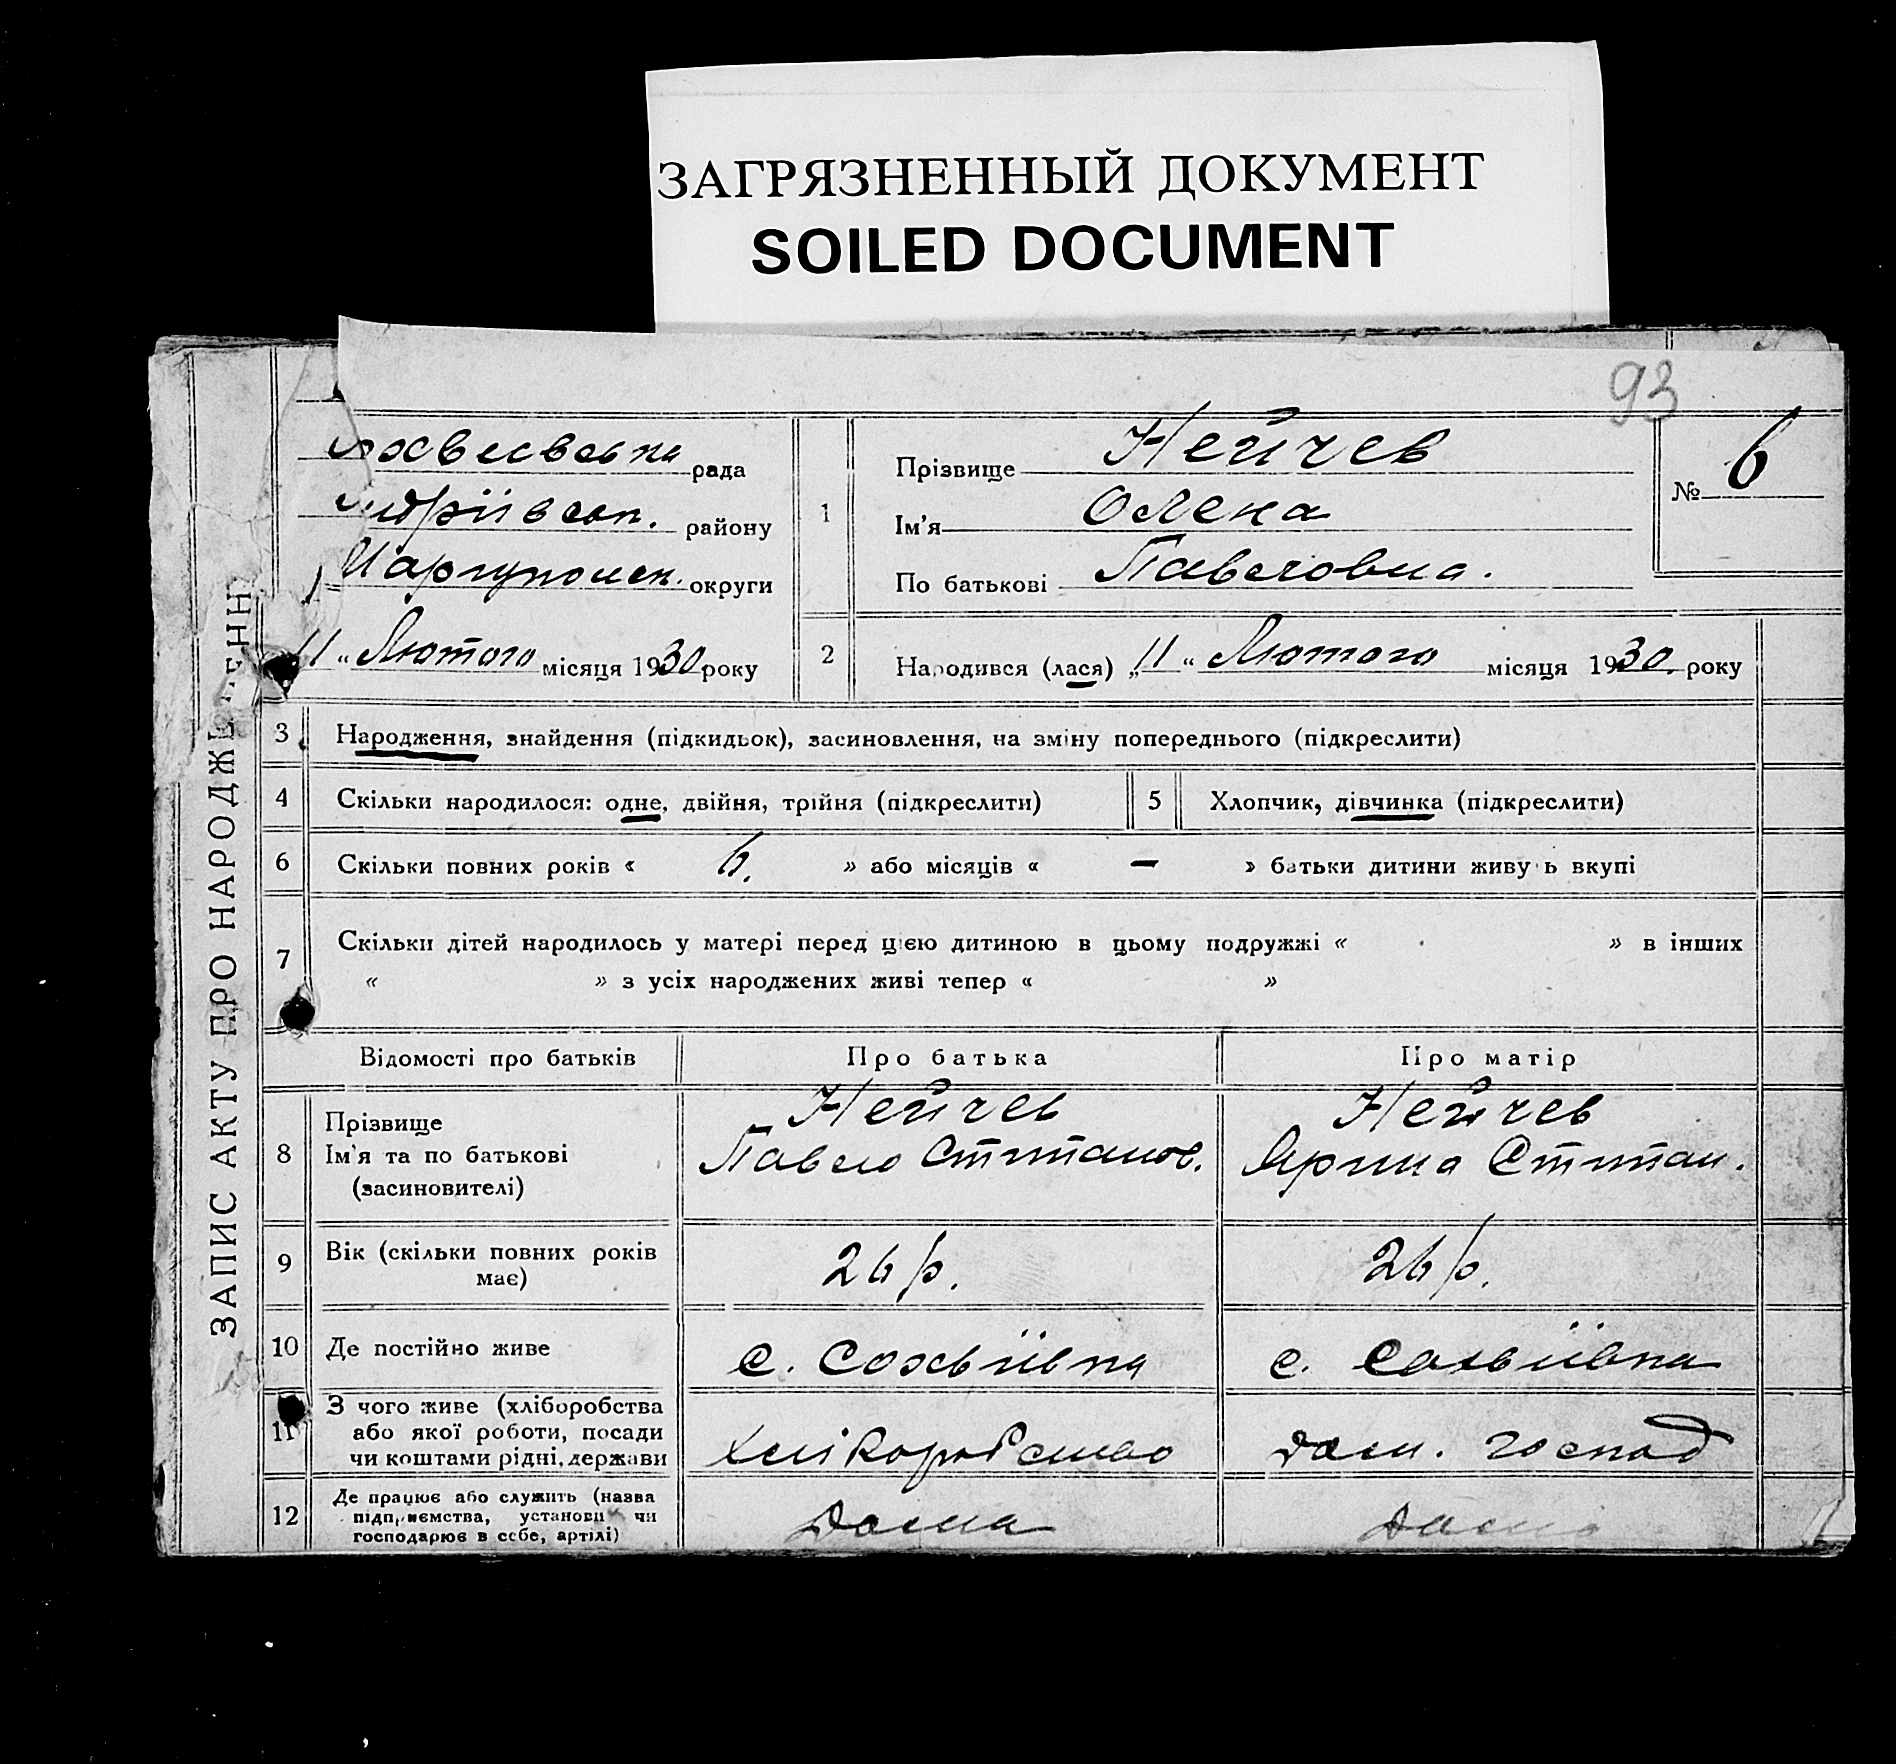 ЗАГРЯЗНЕННЫЙ ДОКУМЕНТ
SOILED DOCUMENT
93
ЗАПИС АКТУ ПРО НАРОДЖЕННЯ
рада
району
Маріупольск. округи
11 „ Лютого місяця 1930 року
1
Прізвище Нейчев
Ім'я Олена
По батькові Павеловна.
№ 6
2 Народився (лася) „11 “ Лютого місяця 1930 року
3 Народження, знайдення (підкидьок), засиновлення, на зміну попереднього (підкреслити)
4 Скільки народилося: одне, двійня, трійня (підкреслити)
5 Хлопчик, дівчинка (підкреслити)
6 Скільки повних років « 6. » або місяців « — » батьки дитини живуть вкупі
7 Скільки дітей народилось у матері перед цією дитиною в цьому подружжі « » в інших
« » з усіх народжених живі тепер « »
Відомості про батьків Про батька Про матір
8 Прізвище
Ім'я та по батькові
(засиновителі)
Нейчев
Павело Степанов.
Нейчев
Ярина Степан.
9 Вік (скільки повних років
має)
26 р.
26 р.
10 Де постійно живе
с. Софьіївка
с. Софьіївка
11 З чого живе (хліборобства
або якої роботи, посади
чи коштами рідні, держави
Хліборобство
дом. господ
12 Де працює або служить (назва
підприємства, установи чи
господарює в себе, артілі)
Дома
Дома